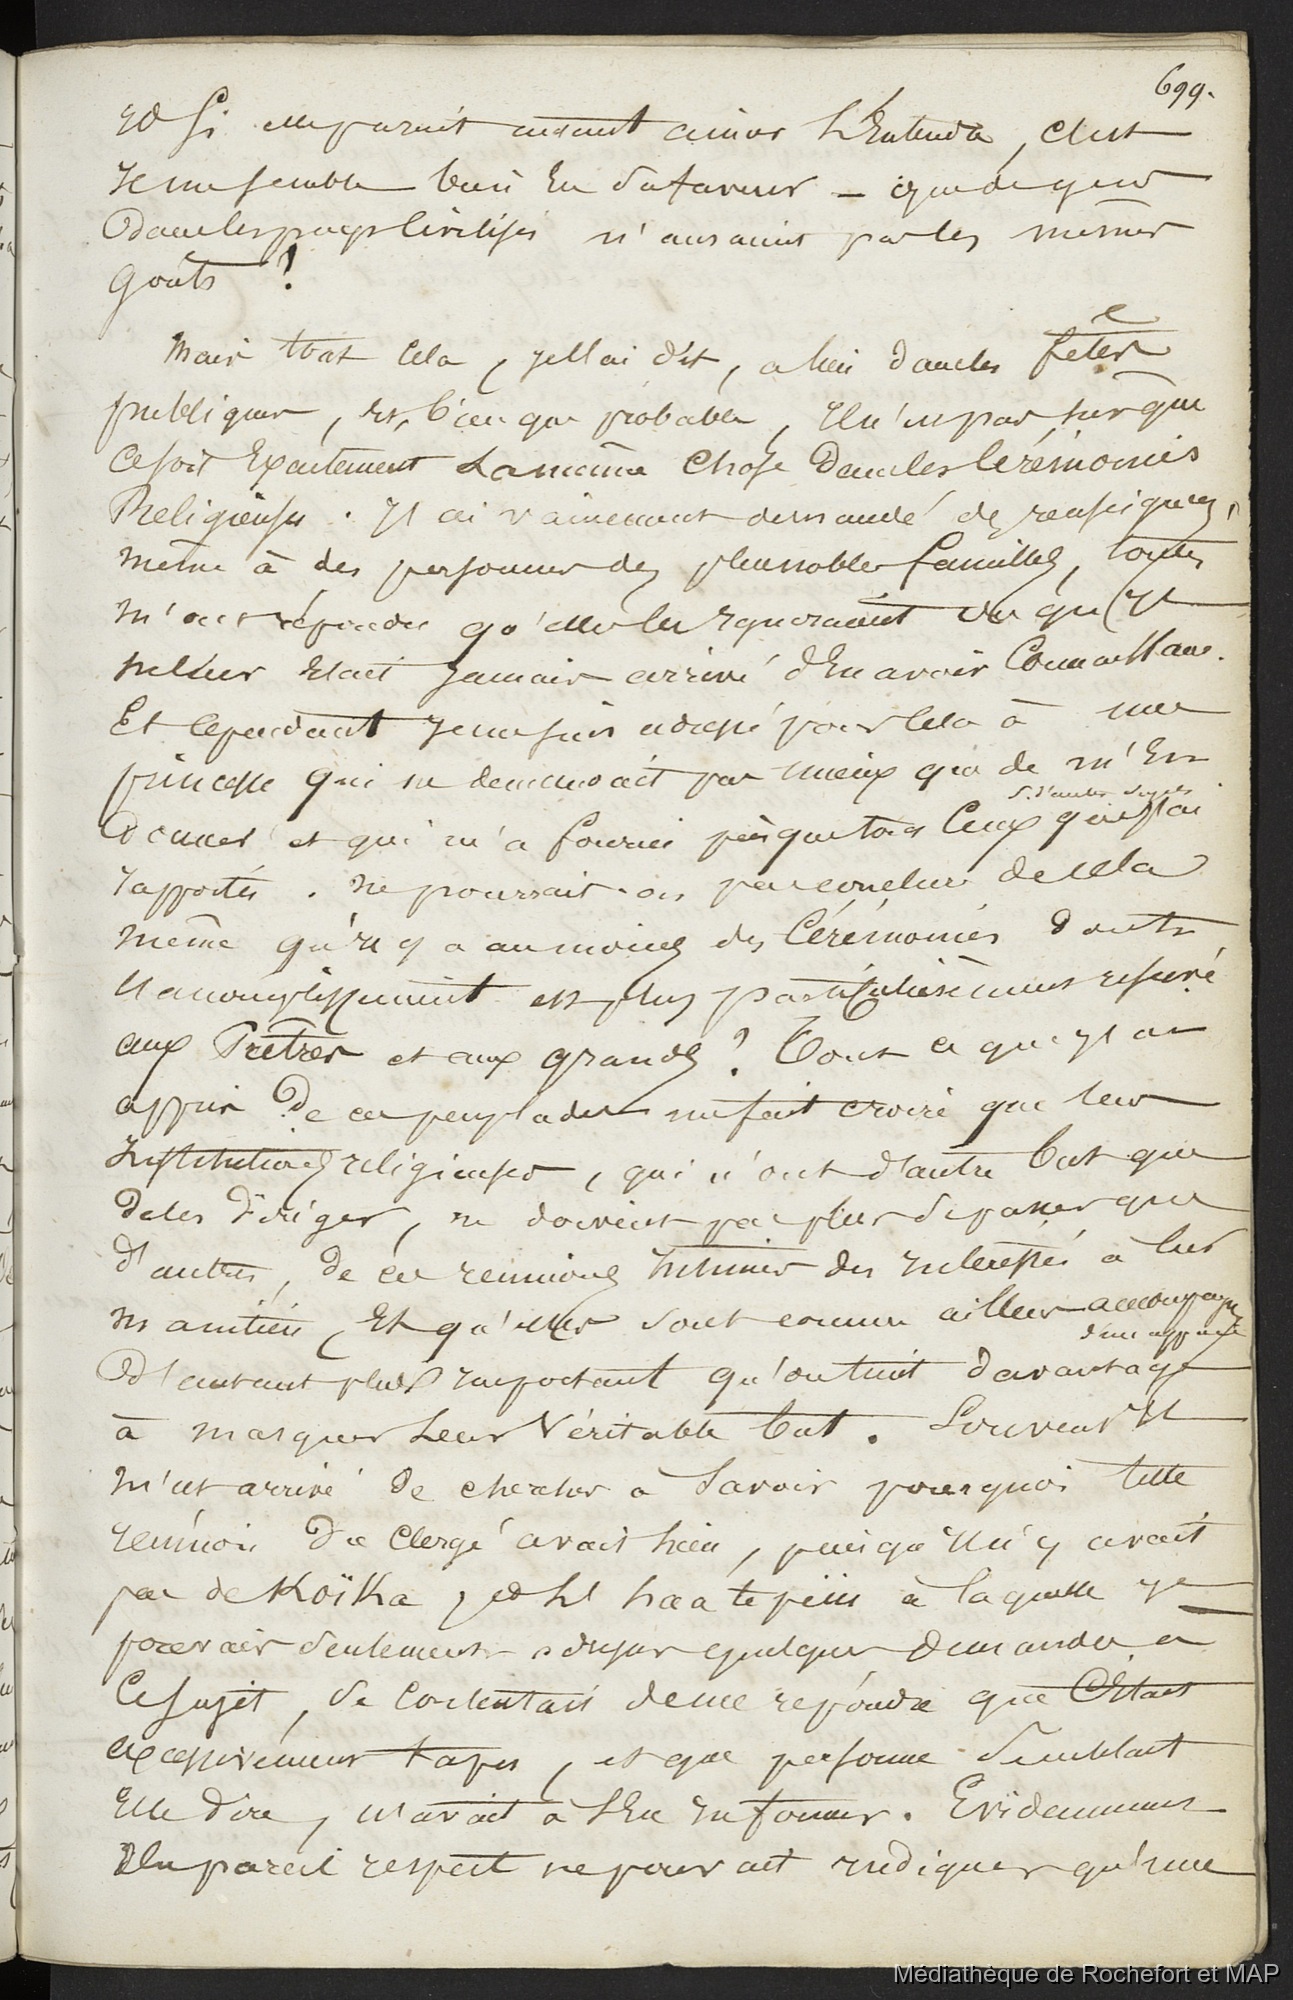 699.
et si elle paraît autant aimer l'Entendre, c'est
il me semble bien En sa faveur — que de gens
Dans les pays civilisés n'auraient pas les mêmes
goûts ?
Mais tout cela, je l'ai dit, a lieu dans les fêtes
publiques, et, bien que probable, Il n'est pas sûr que
ce soit Exactement la même chose Dans les Cérémonies
Religieuses. J'ai vainement demandé des renseignem.
même à des personnes des plus nobles familles, toutes
m'ont répondu qu'elles les ignoraient vu qu'il
ne leur était jamais arrivé d'En avoir Connaissance.
Et cependant je me suis adressé pour cela à une
princesse qui ne demandait pas mieux que de m'En
s. d'autres sujets
Donner et qui m'a fourni presque tous Ceux que j'ai
rapportés. ne pourrait-on pas conclure de cela
même qu'il y a au moins des Cérémonies dont
l'accomplissement est plus particulièrement réservé
aux Prêtres et aux grands ? Tout ce que j'ai
appris De ces peuplades me fait croire que leurs
Institutions religieuses, qui n'ont d'autre but que
De les Diriger, ne doivent pas plus se passer que
d'autres, De ces réunions intimes des intéressés à leur
maintien, Et qu'elles sont comme ailleurs accompagn.
d'un appareil
D'autant plus important qu'on tient davantage
à masquer leur Véritable but. Souvent Il
m'est arrivé De chercher à Savoir pourquoi telle
réunion Du Clergé avait lieu, puisqu'il n'y avait
pas de Koïka, et la haatepeiu à laquelle je
pouvais seulement adresser quelques demandes à
Ce sujet, se Contentait de me répondre que C'était
excessivement tapu, et que personne, semblait
Elle dire, n'avait à s'En informer. Evidemment
Un pareil respect ne pouvait indiquer qu'une
Médiathèque de Rochefort et MAP